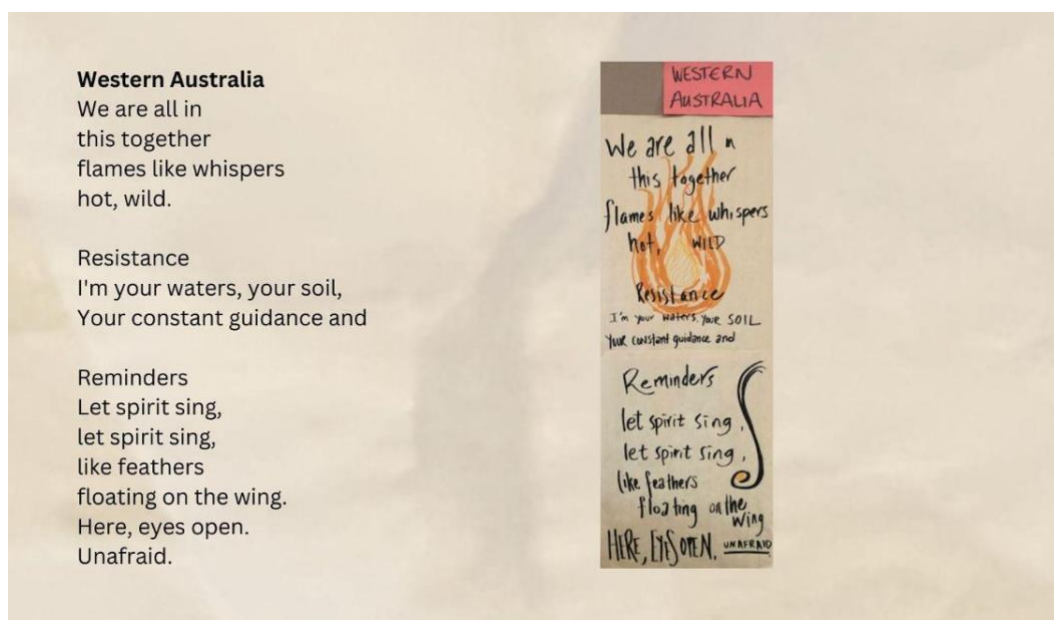 Western Australia
We are all in
this together
flames like whispers
hot, wild.
Resistance
I'm your waters, your soil,
Your constant guidance and
Reminders
Let spirit sing,
let spirit sing,
like feathers
floating on the wing.
Here, eyes open.
Unafraid.
WESTERN
AUSTRALIA
We are all n
this together
flames like whispers
hot, WILD
Resistance
I'm your waters, your SOIL
Your constant guidance and
Reminders
let spirit sing,
let spirit sing,
like feathers
floating on the
wing
HERE, EYES OPEN. UNAFRAID